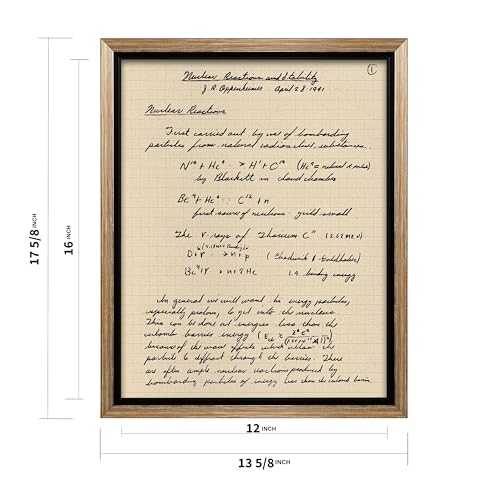 Nuclear Reactions and Stability
①
J. R. Oppenheimer April 28 1941
Nuclear Reactions
First carried out by use of bombarding
particles from natural radioactive substances.
N¹⁴ + He⁴ → H¹ + C¹⁴ (He⁴ = natural α
by Blackett in cloud chamber
Be⁹ + He⁴ : C¹² + n
first source of neutrons yield small
The γ-rays of Thorium C" (2.62 MeV)
D + γ → n + p (Chadwick & Goldhaber)
Be⁹ + γ → n + 2 He 1.9 binding energy
In general we will want hi energy particles,
especially protons, to get into the nucleus.
This can be done at energies less than the
coulomb barrier energy
because of the wave effects which allow the
particle to diffract through the barrier. There
are often ample nuclear reactions produced by
bombarding particles of energy less than the coulomb barrier.
17 5/8 INCH
16 INCH
12 INCH
13 5/8 INCH